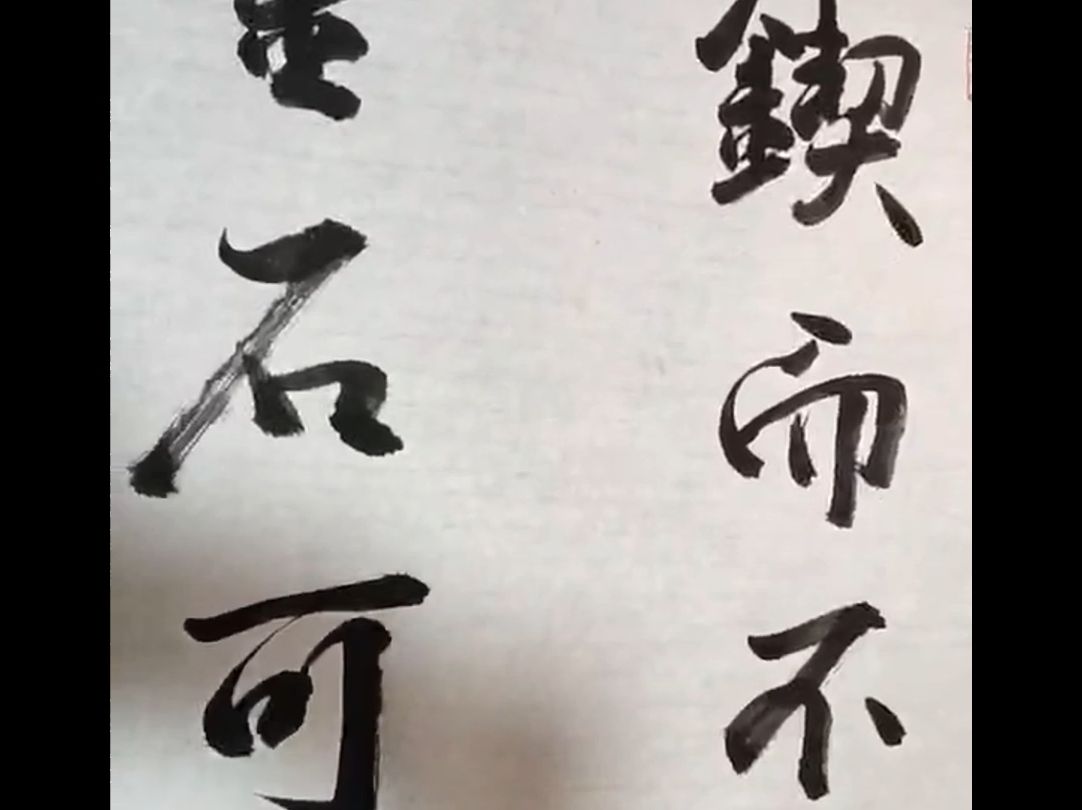 鍥而不
金石可